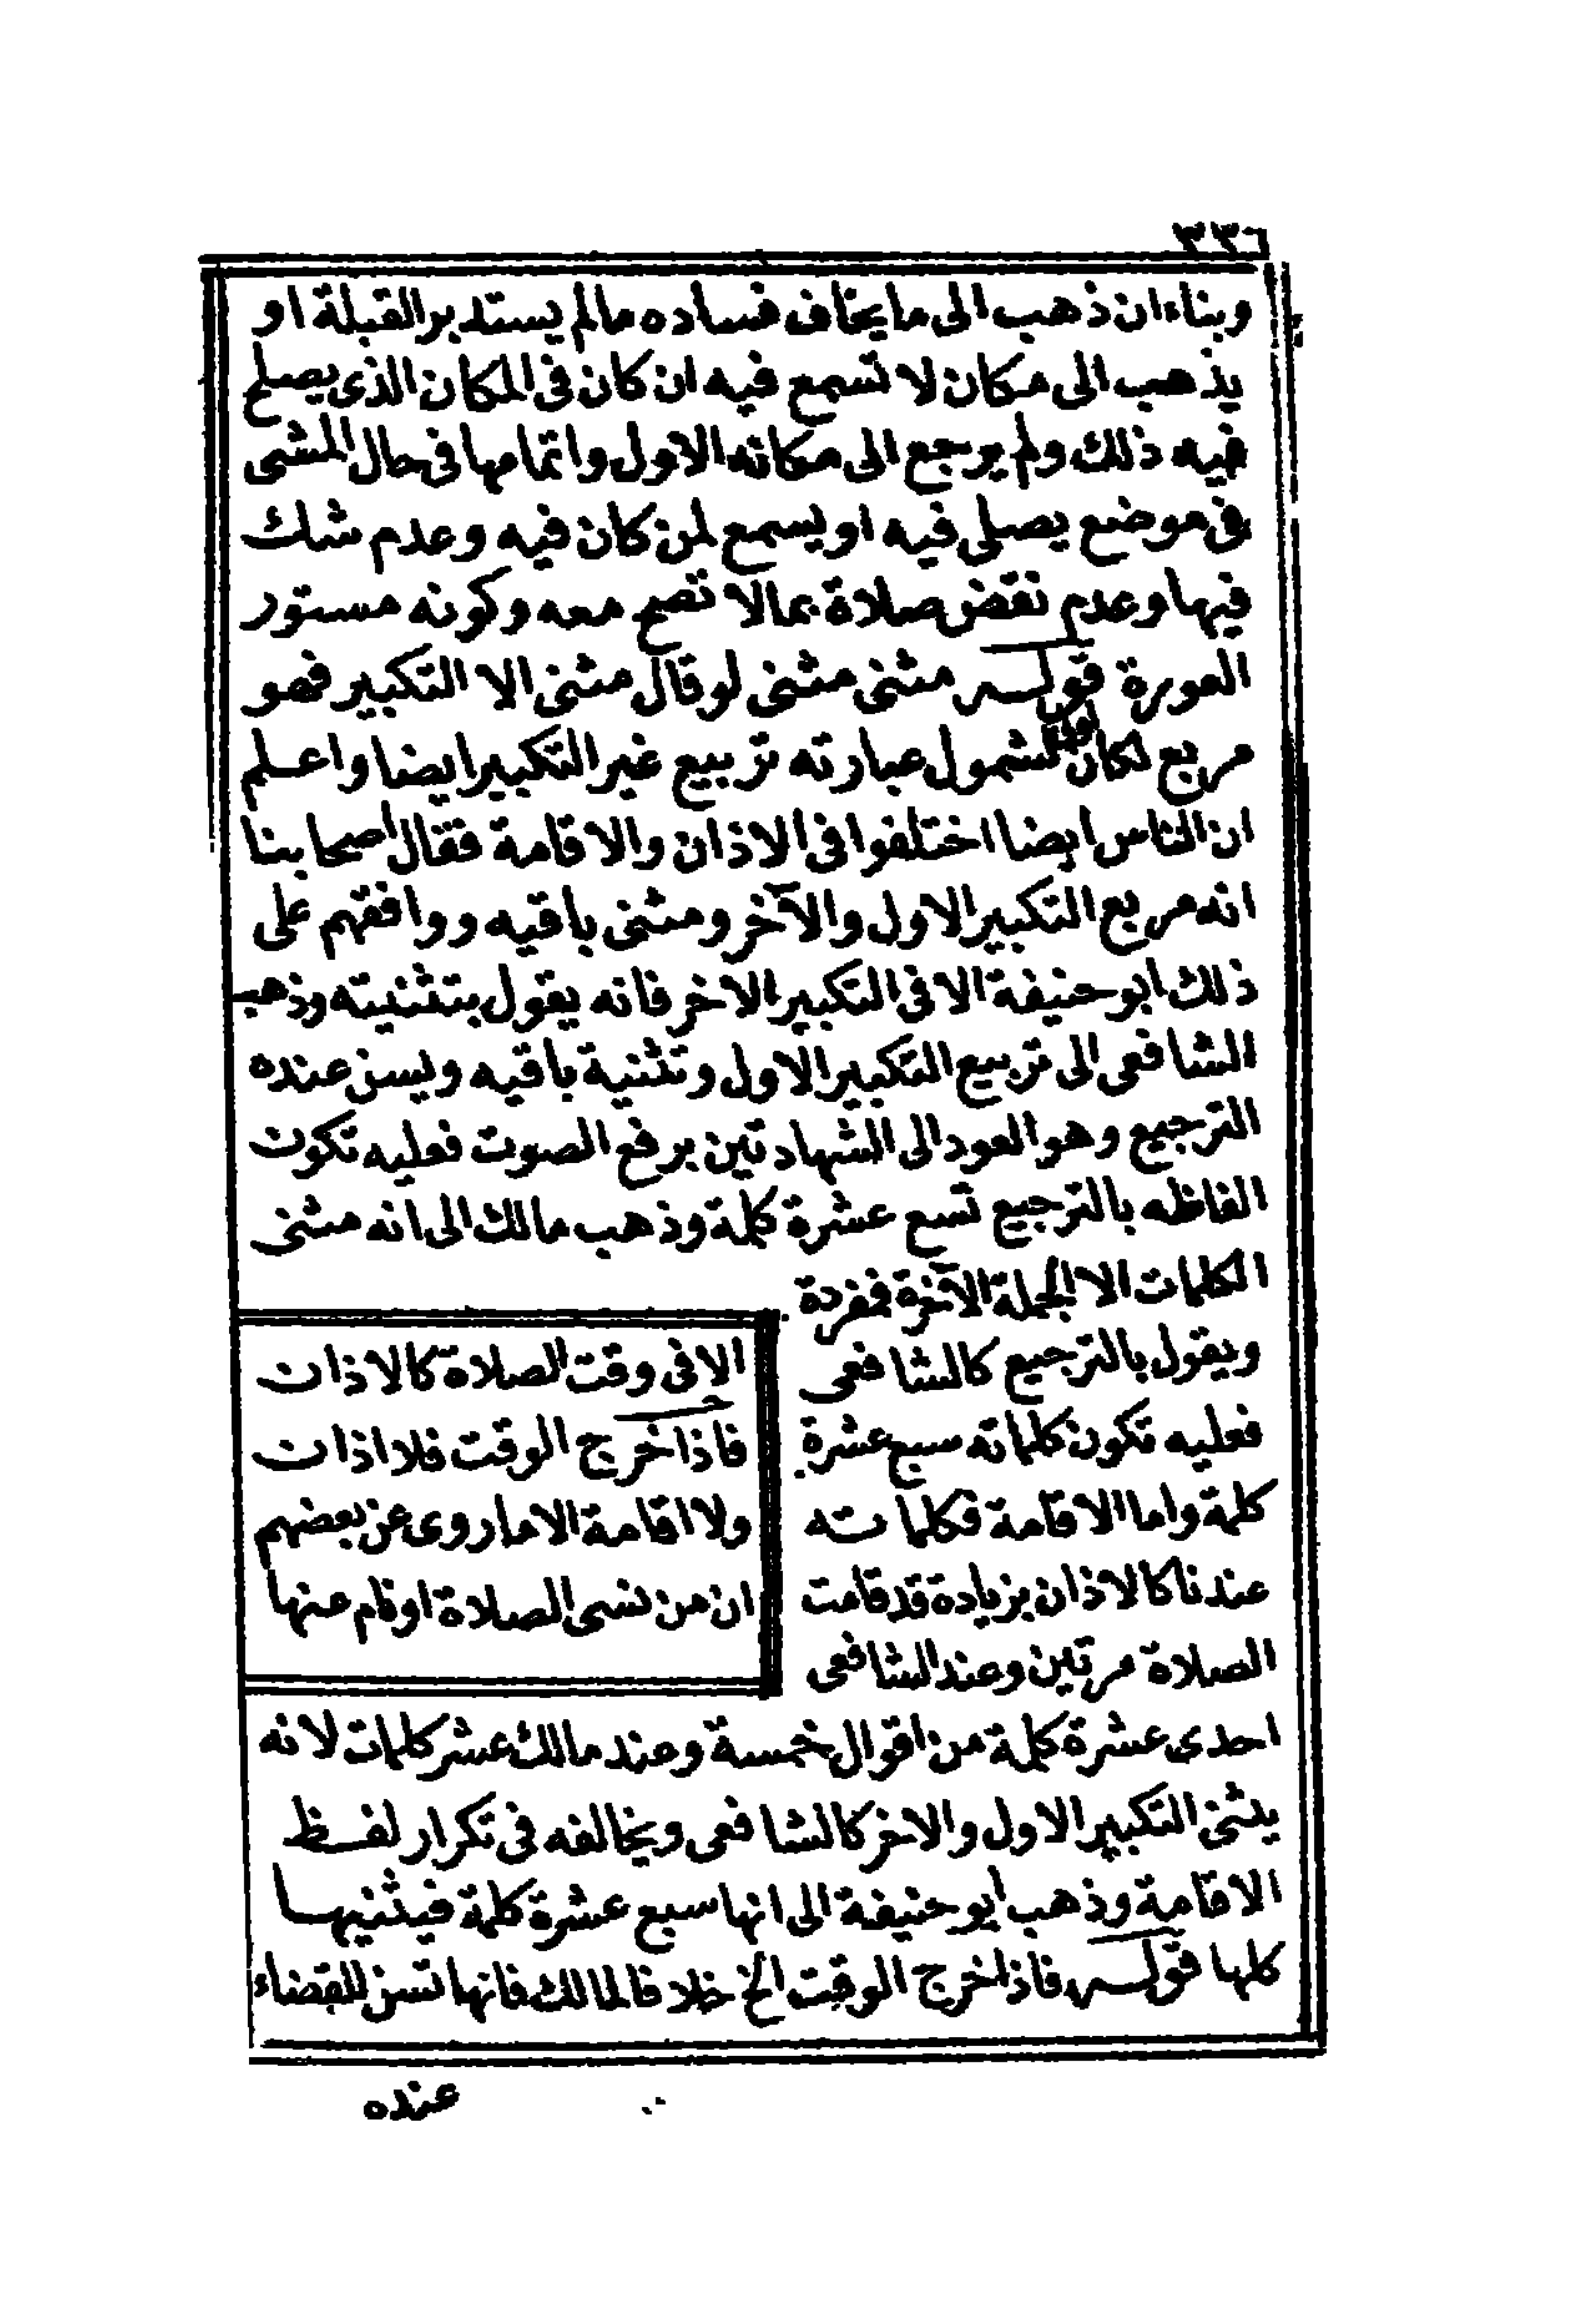 ٣٣٦
وبناء ان ذهب الى ما يخاف فساده مالم يستدبر القبلة او
يذهب الى مكان لا تسمع فيه ان كان فى المكان الذى يصلح
فيه ذلك ولم يرجع الى مكانه الاول واتمامها فى حال المشى
فى موضع يصلى فيه او يسمع لمن كان فيه وعدم شك
فيها وعدم نقض صلاة بمالا تصح معه وكونه مستور
العورة قولـه مثنى مثنى لو قال مثنى الا التكبير فهو
مربع لكان لشمول عبارته تربيع غير التكبير ايضا واعلم
ان الناس ايضا اختلفوا فى الاذان والاقامة فقال اصحابنا
انه مربع التكبير الاول والآخر ومثنى باقيه ووافقهم على
ذلك ابو حنيفة الا فى التكبير الاخر فانه يقول بتثنيته وذهب
الشافعى الى تربيع التكبير الاول وتثنية باقيه ويسن عنده
الترجيع وهو العود الى الشهادتين برفع الصوت فعليه تكون
الفاظه بالترجيع تسع عشرة كلمة وذهب مالك الى انه مثنى
الكلمات الا الجملة الآخرة فمفردة
ويقول بالترجيع كالشافعى
فعليه تكون كلماته سبع عشرة
كلمة واما الاقامة فكلماته
عندنا كالاذان بزيادة قد قامت
الصلاة مرتين وعند الشافعى
احدى عشرة كلمة من اقوال خمسة وعند مالك عشر كلمات لانه
يثنى التكبير الاول والاخر كالشافعى ويخالفه فى تكرار لفظ
الاقامة وذهب ابو حنيفة الى انها سبع عشرة كلمة فيثنيها
كلها قولـه فاذا خرج الوقت الخ خلافا لمالك فانها تسن للقضاء
الا فى وقت الصلاة كالاذان
فاذا خرج الوقت فلا اذان
ولا اقامة الا ما روى عن بعضهم
ان من نسى الصلاة او نام عنها
عنده